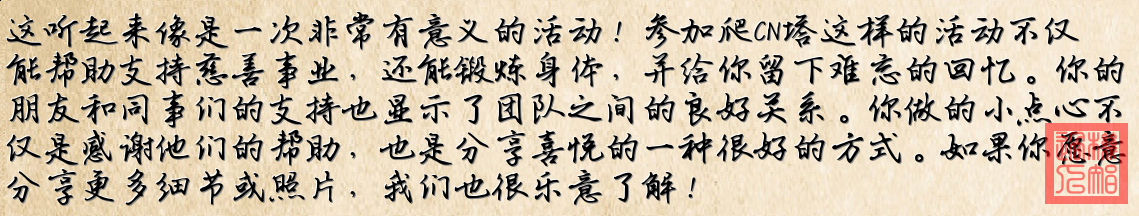 这听起来像是一次非常有意义的活动！参加爬CN塔这样的活动不仅
能帮助支持慈善事业，还能锻炼身体，并给你留下难忘的回忆。你的
朋友和同事们的支持也显示了团队之间的良好关系。你做的小点心不
仅是感谢他们的帮助，也是分享喜悦的一种很好的方式。如果你愿意
分享更多细节或照片，我们也很乐意了解！